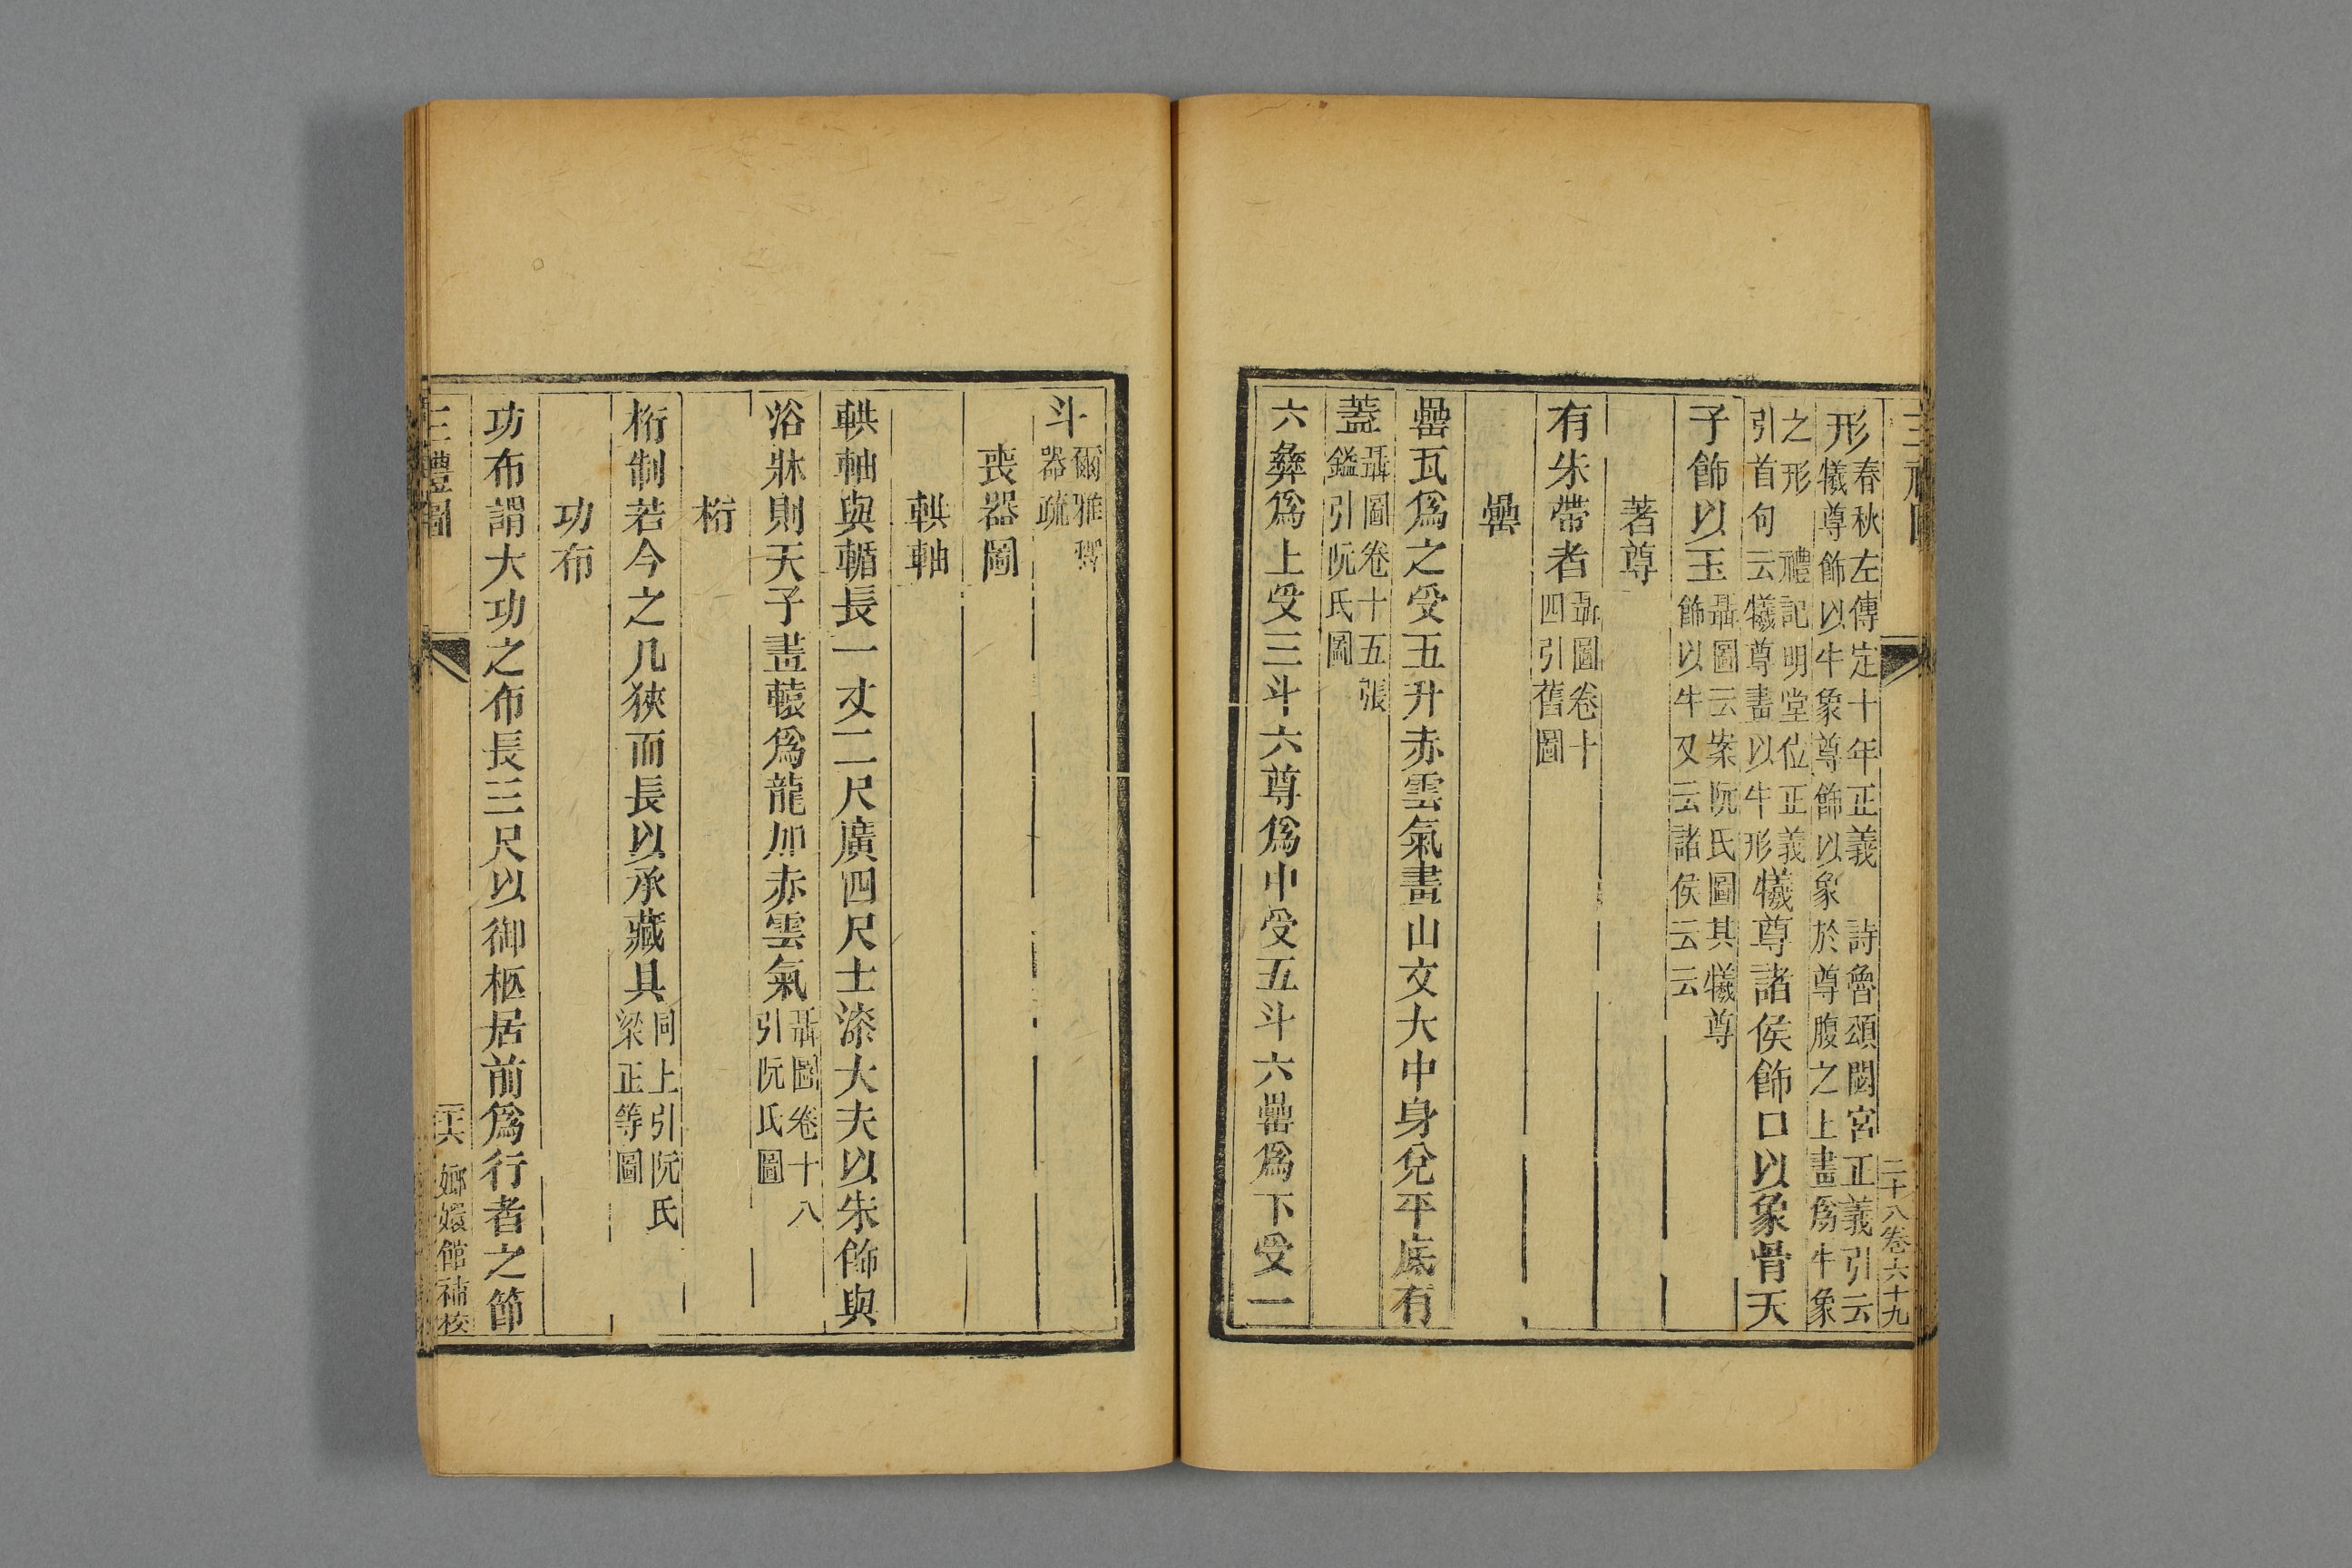 三禮圖
二十八卷六十九
形春秋左傳定十年正義 詩魯頌閟宮正義引云
犧尊飾以牛象尊飾以象於尊腹之上畫爲牛象
之形 禮記明堂位正義
引首句云犧尊畫以牛形犧尊諸侯飾口以象骨天
子飾以玉聶圖云案阮氏圖其犧尊
飾以牛又云諸侯云云
著尊
有朱帶者聶圖卷十
四引舊圖
罍
罍瓦爲之受五升赤雲氣畫山文大中身兌平底有
蓋聶圖卷十五張
鎰引阮氏圖
六彝爲上受三斗六尊爲中受五斗六罍爲下受一
斗爾雅釋
器疏
喪器圖
輁軸
輁軸與輴長一丈二尺廣四尺士漆大夫以朱飾與
浴牀則天子畫轅爲龍加赤雲氣聶圖卷十八
引阮氏圖
桁
桁制若今之几狹而長以承藏具同上引阮氏
梁正等圖
功布
功布謂大功之布長三尺以御柩居前爲行者之節
三禮圖
嫏嬛館補校